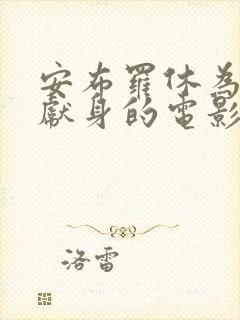 安布羅休為
獻身的電影
洛雷